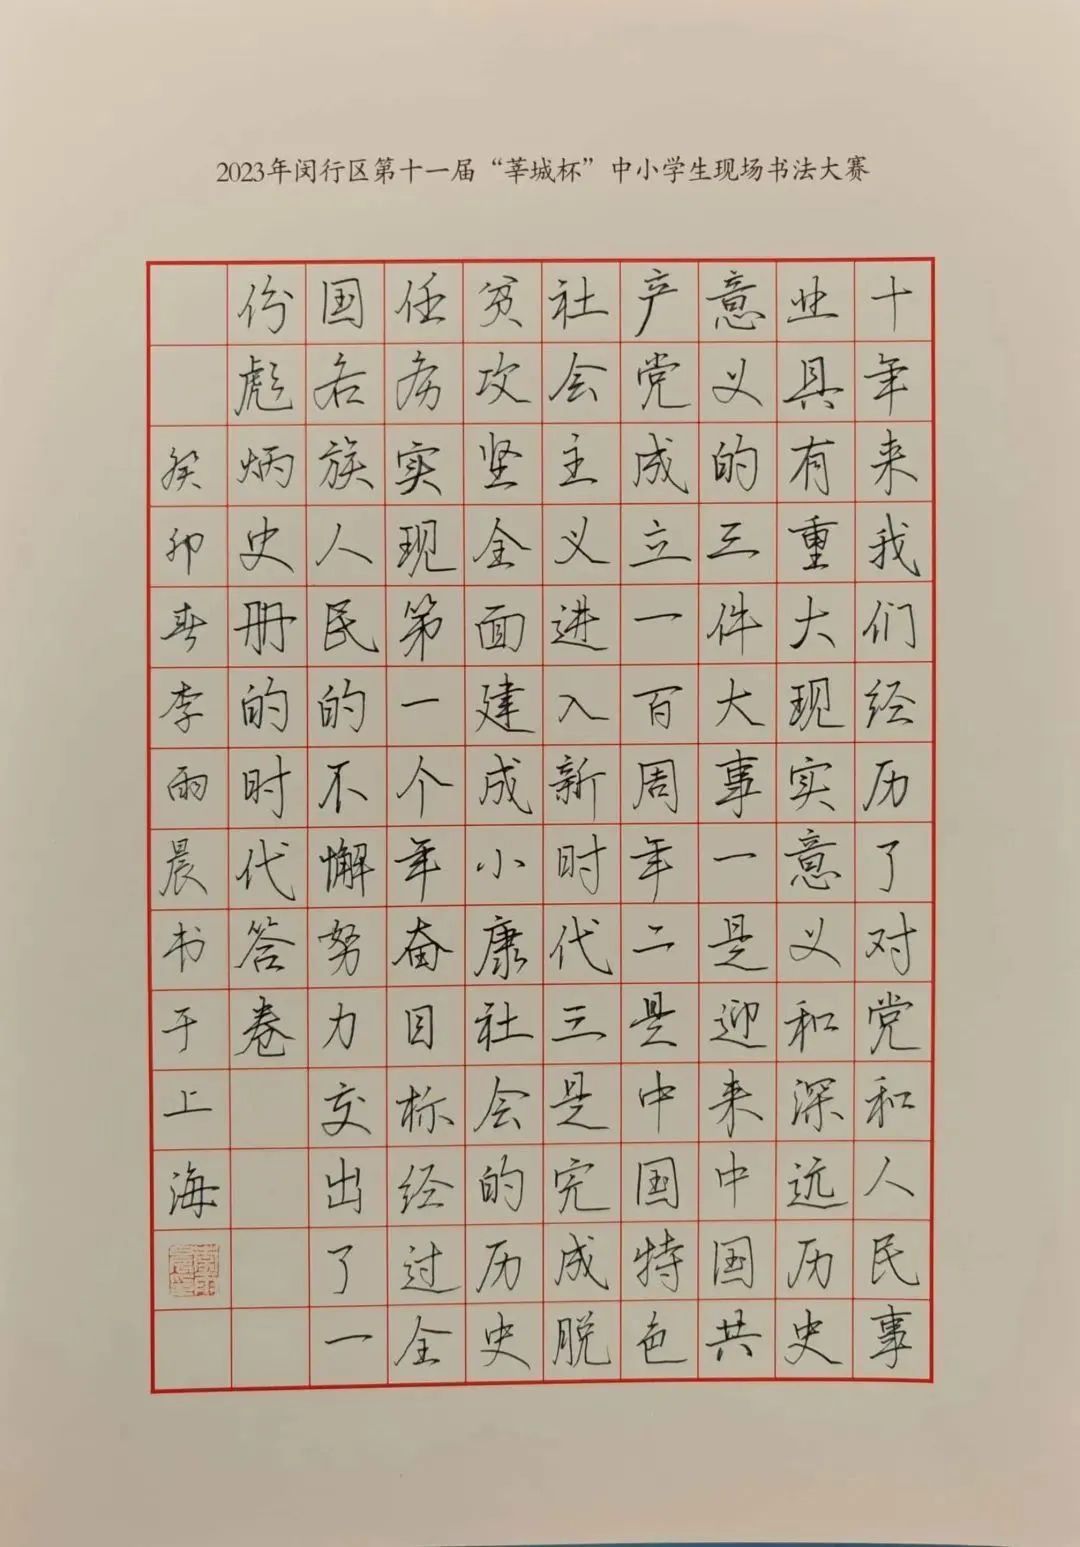 2023年闵行区第十一届“莘城杯”中小学生现场书法大赛
十年来我们经历了对党和人民事
业具有重大现实意义和深远历史
意义的三件大事一是迎来中国共
产党成立一百周年二是中国特色
社会主义进入新时代三是完成脱
贫攻坚全面建成小康社会的历史
任务实现第一个年奋目标经过全
国各族人民的不懈努力交出了一
份彪炳史册的时代答卷
癸卯春李雨晨书于上海